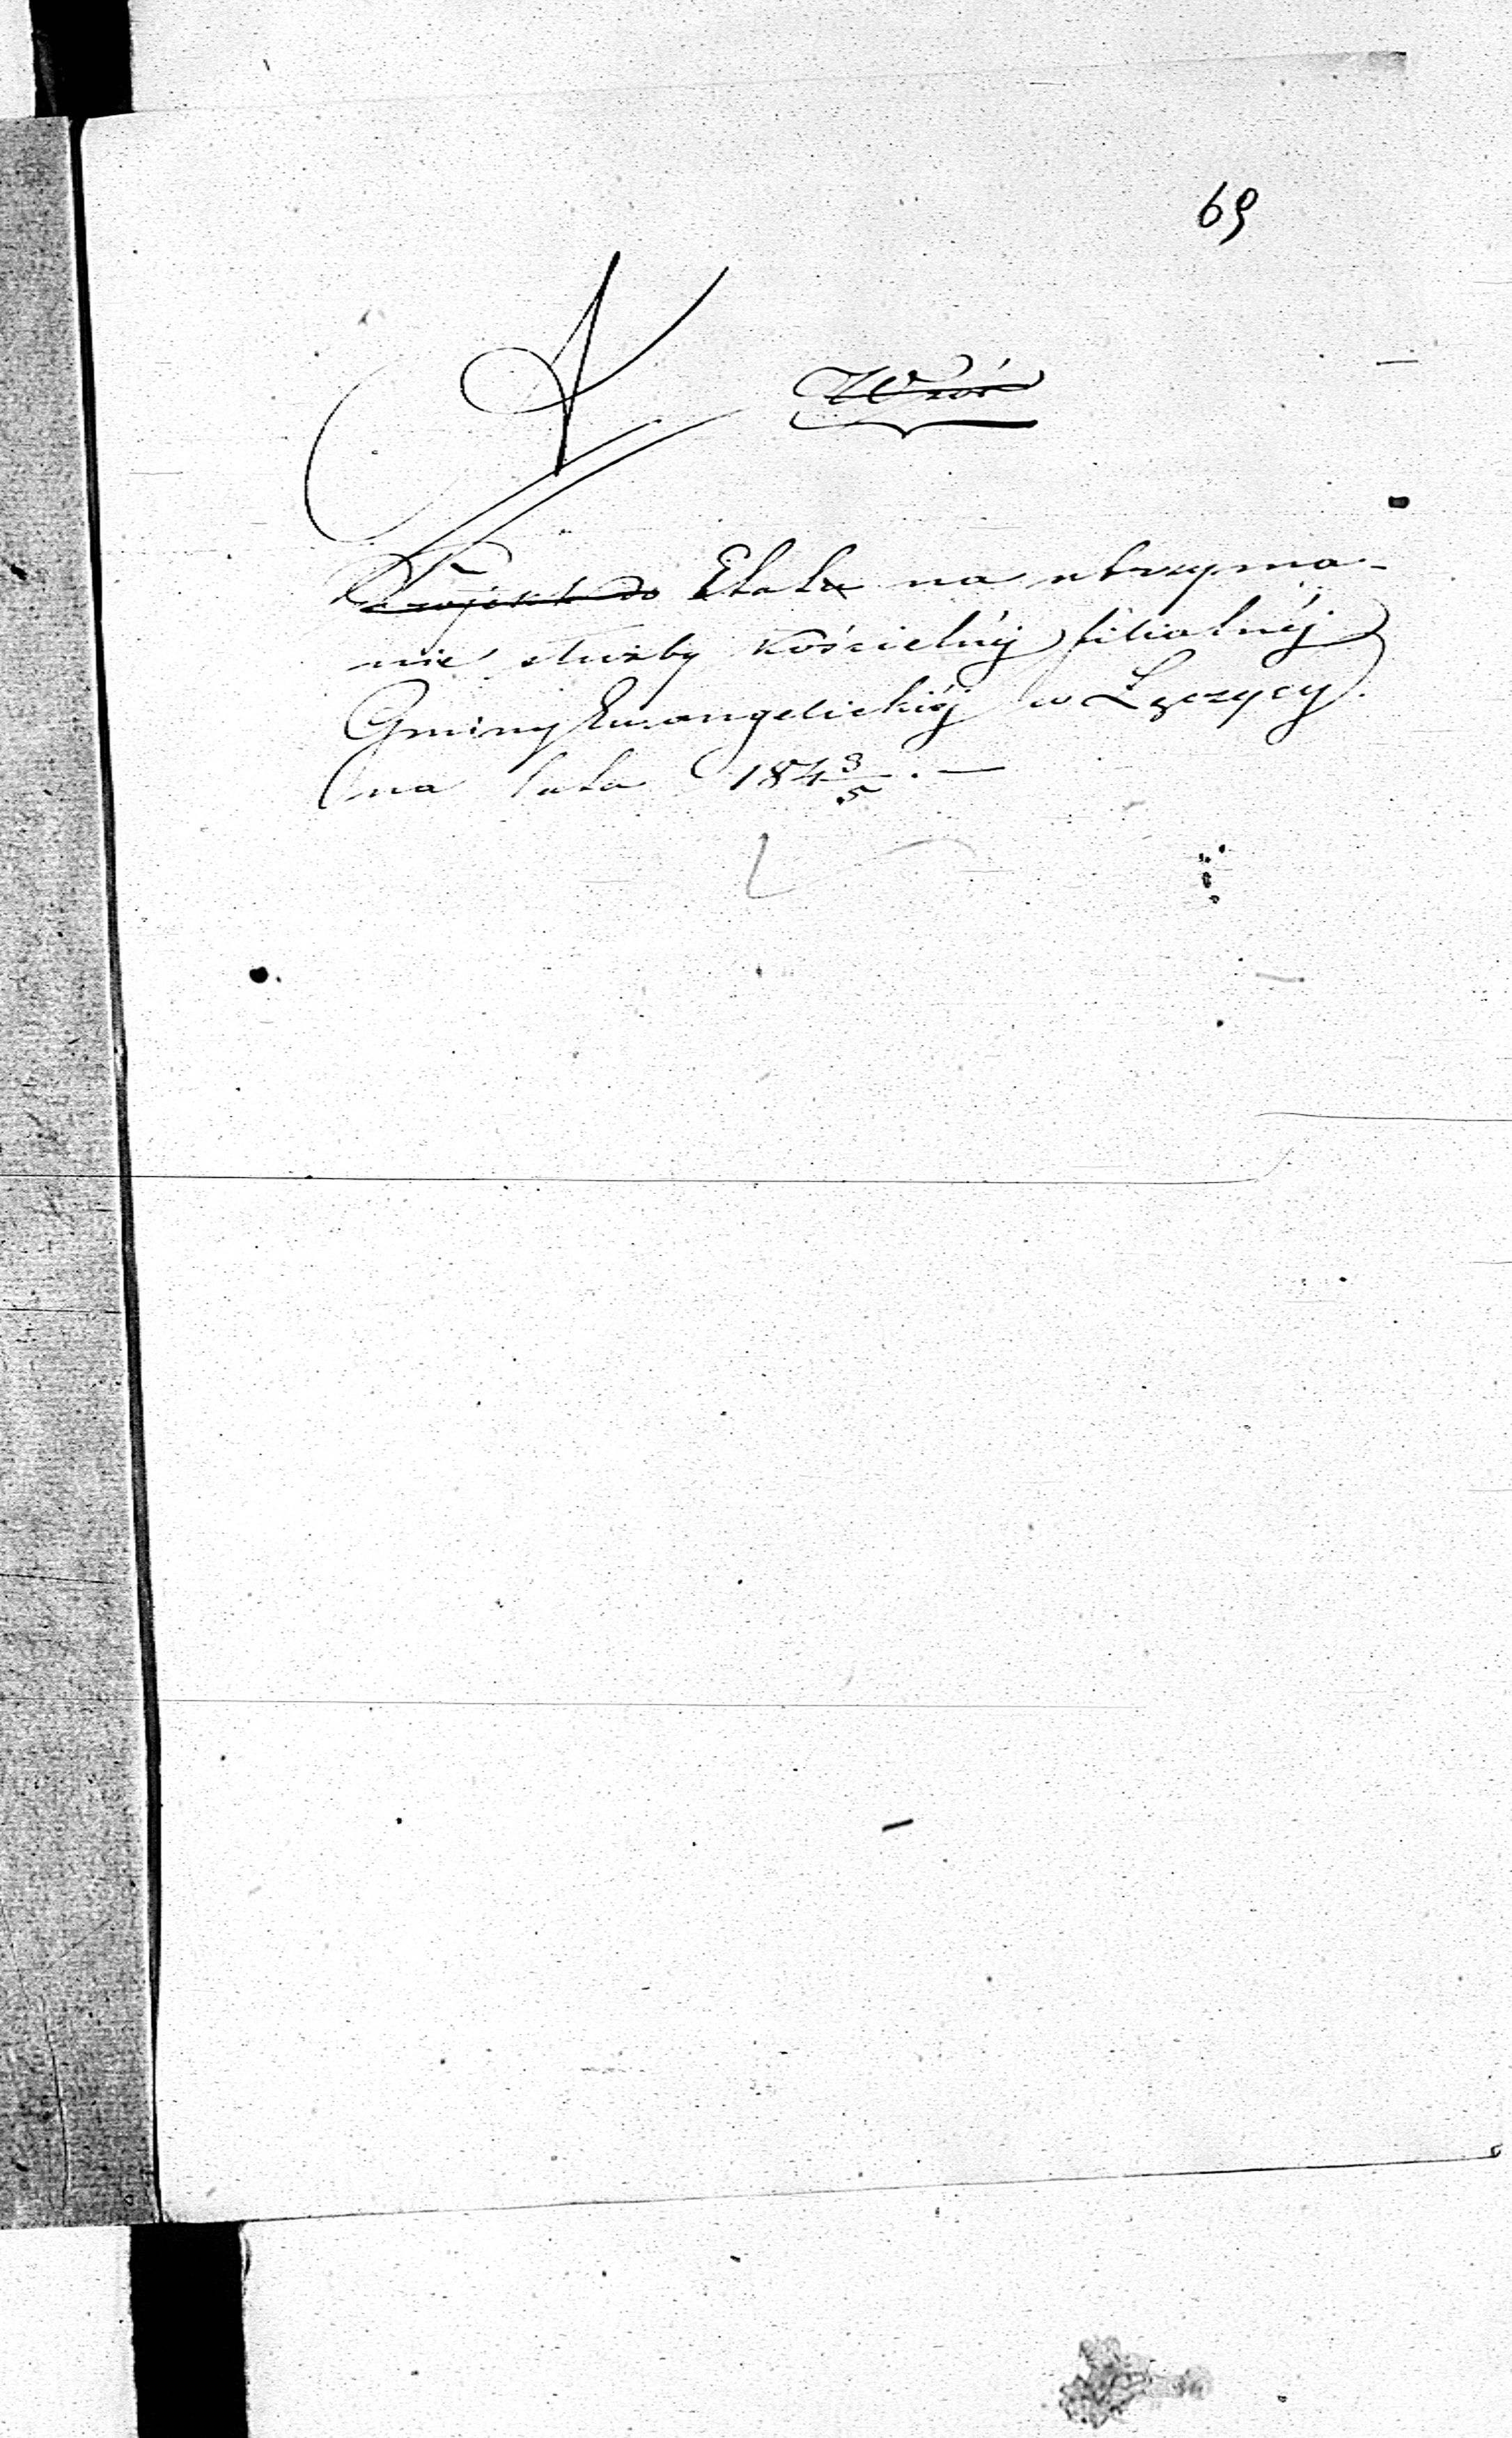 69
Wzór
Projekt do Etatu na utrzyma-
nie służby Kościelnéj filialnéj
Gminy Ewangelickiéj w Łęczycy.
na lata 184 3/5. —